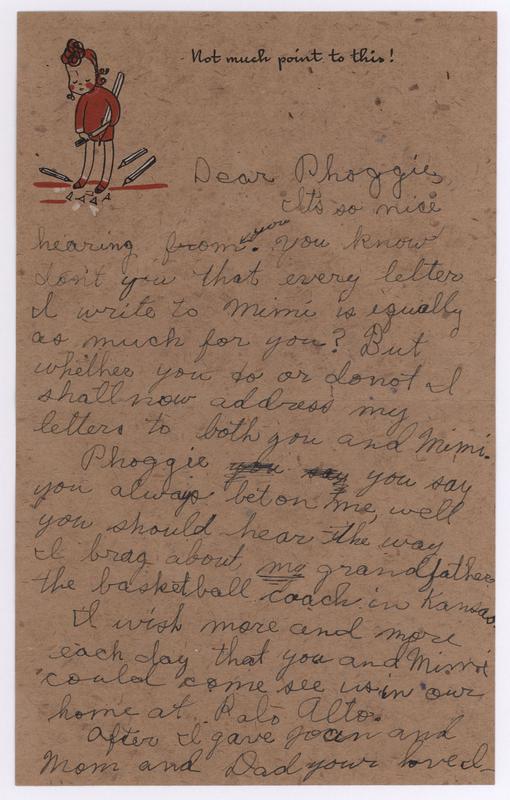 Not much point to this!
Dear Phoggie,
It's so nice
hearing from you. you know
don't you that every letter
I write to Mimi is equally
as much for you? But
whether you do or donot I
shall now address my
letters to both you and Mimi.
Phoggie you say you say
you always bet on me, well
you should hear the way
I brag about my grandfather
the basketball coach in Kansas.
I wish more and more
each day that you and Mimi
could come see us in our
home at Palo Alto.
After I gave Joan and
Mom and Dad your love I